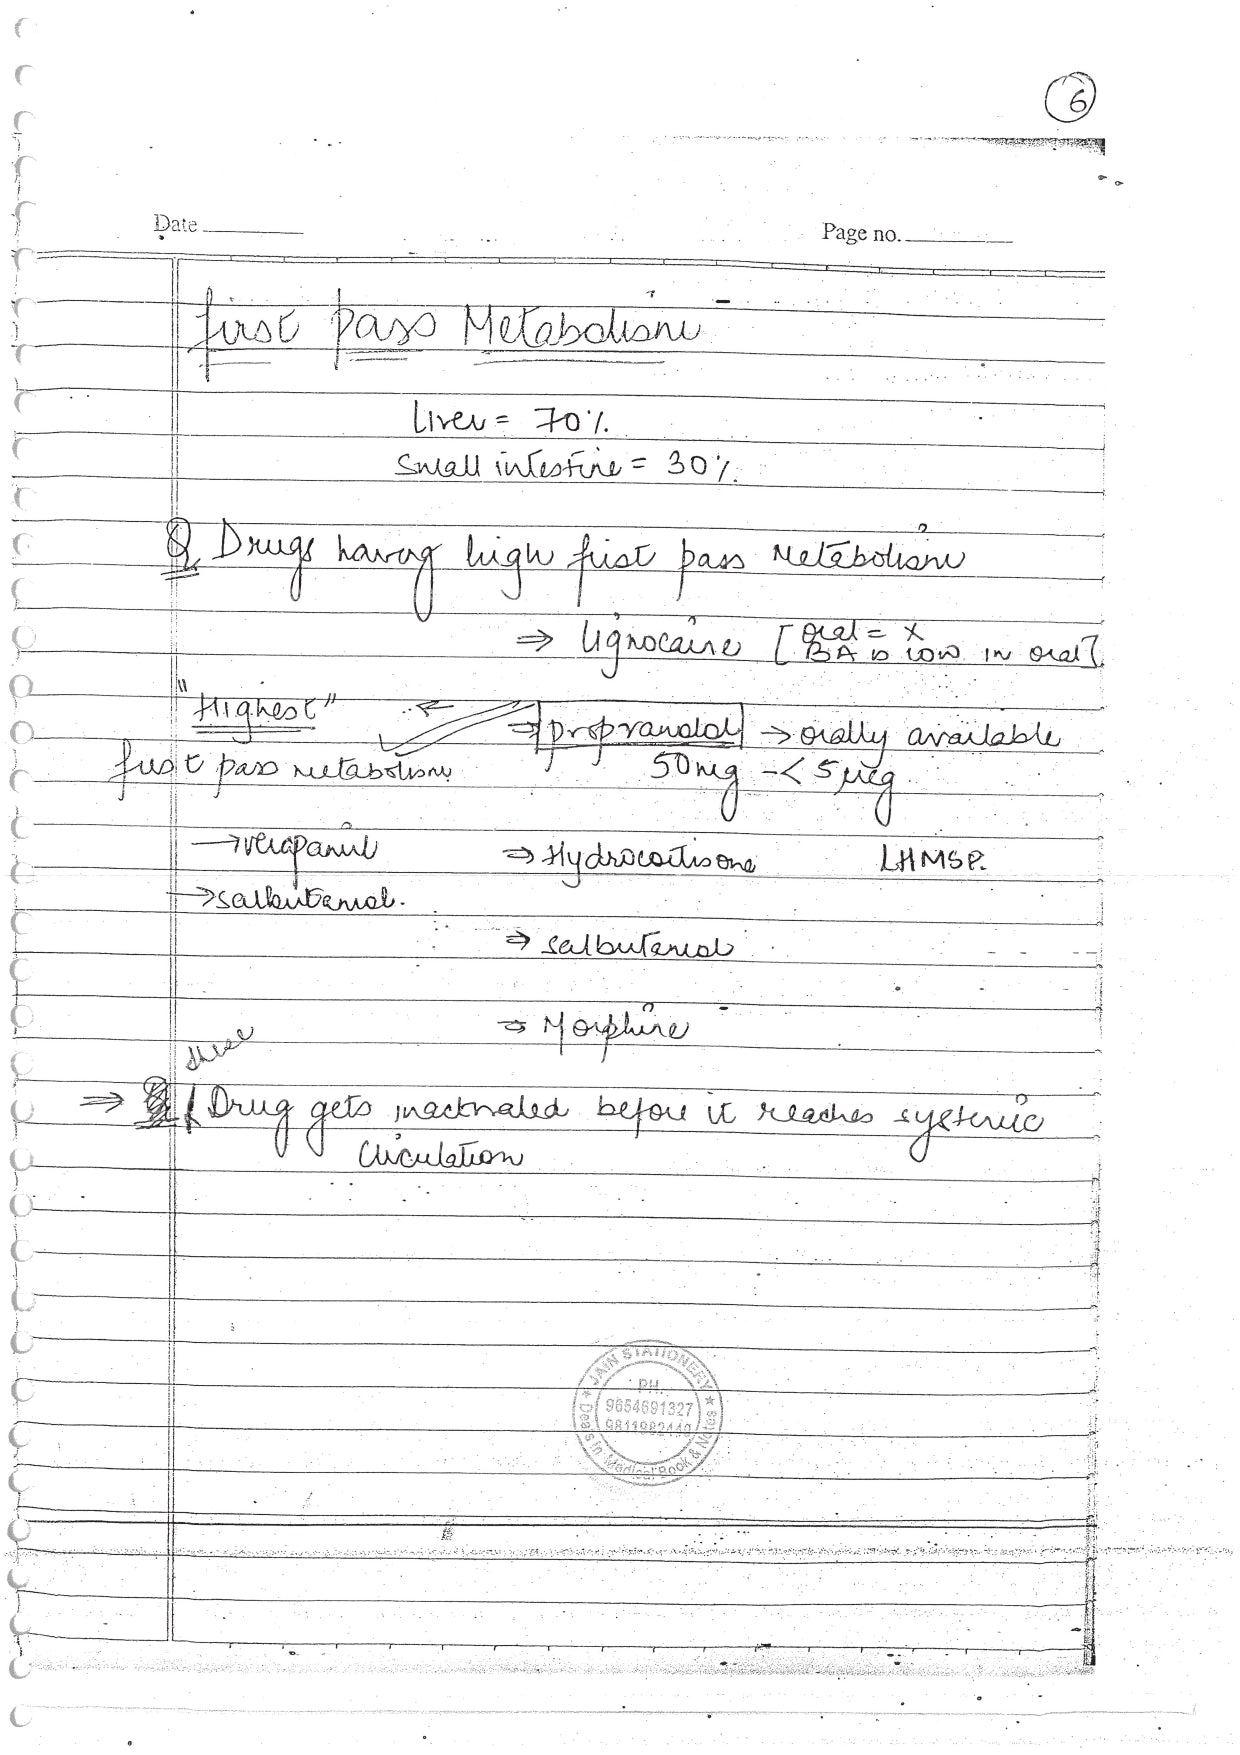 6
Date
Page no.
First pass Metabolism
Liver = 70%.
Small intestine = 30%.
Q Drugs having high first pass Metabolism
⇒ lignocaine [oral = X
BA is low in oral]
"Highest" ← ⇒ propranolol → orally available
first pass metabolism 50mg -< 5 mcg
→ verapamil ⇒ Hydrocortisone LHMSP.
→ salbutamol.
⇒ salbutamol
⇒ Morphine
these
⇒ Drug gets inactivated before it reaches systemic
circulation
JAIN STATIONERY
PH.
9654691327
9811982449
Deals in Medical Book & Notes